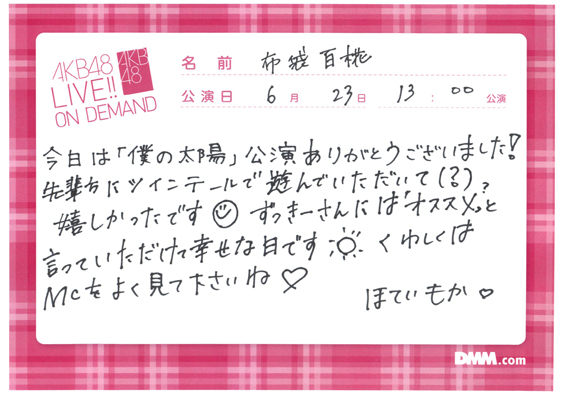 AKB48
LIVE!!
ON DEMAND
AKB
48
名前 布袋百桃
公演日 6月23日 13:00公演
今日は「僕の太陽」公演ありがとうございました!
先輩方にツインテールで遊んでいただいて(?)
嬉しかったです☺ ずっきーさんには"オススメ"と
言っていただけて幸せな日です☀ くわしくは
MCをよく見て下さいね♡
ほてい もか♡
DMM.com